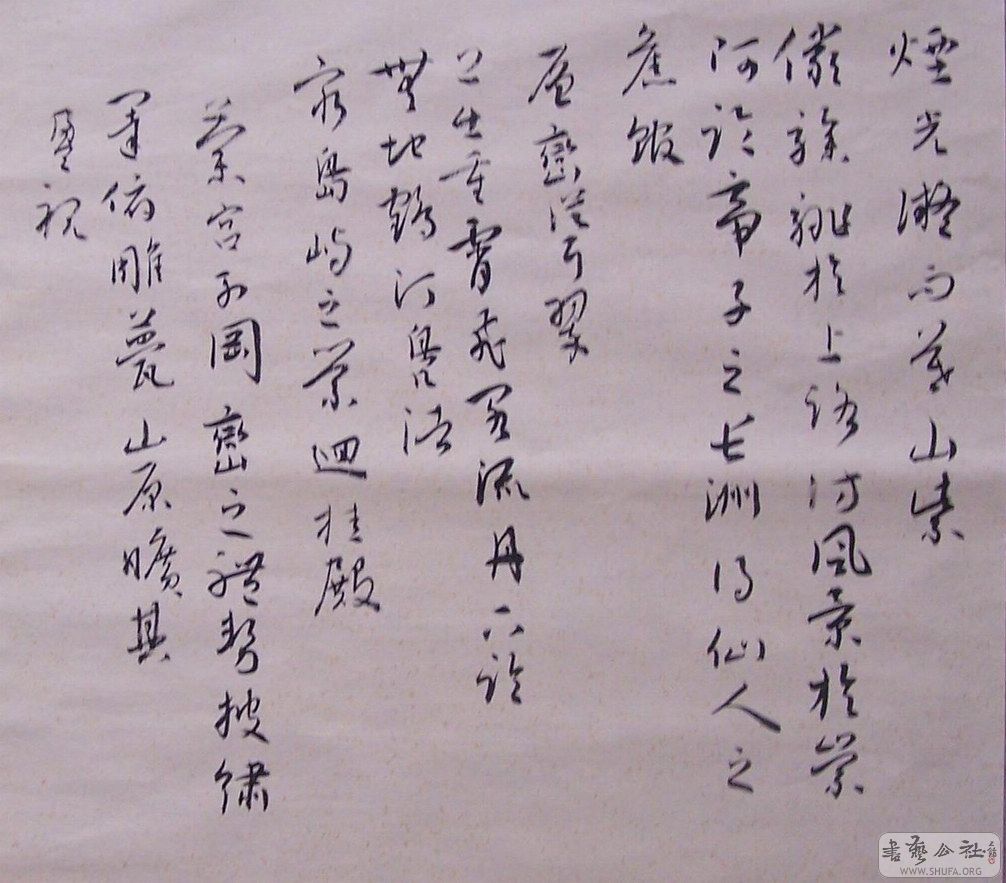 煙光凝而暮山紫
儼驂騑於上路訪風景於崇
阿臨帝子之長洲得仙人之
舊館
層巒聳翠
上出重霄飛閣流丹下臨
無地鶴汀鳧渚
窮島嶼之縈迴桂殿
蘭宮列岡巒之體勢披繡
闥俯雕甍山原曠其
盈視
書藝公社
WWW.SHUFA.ORG